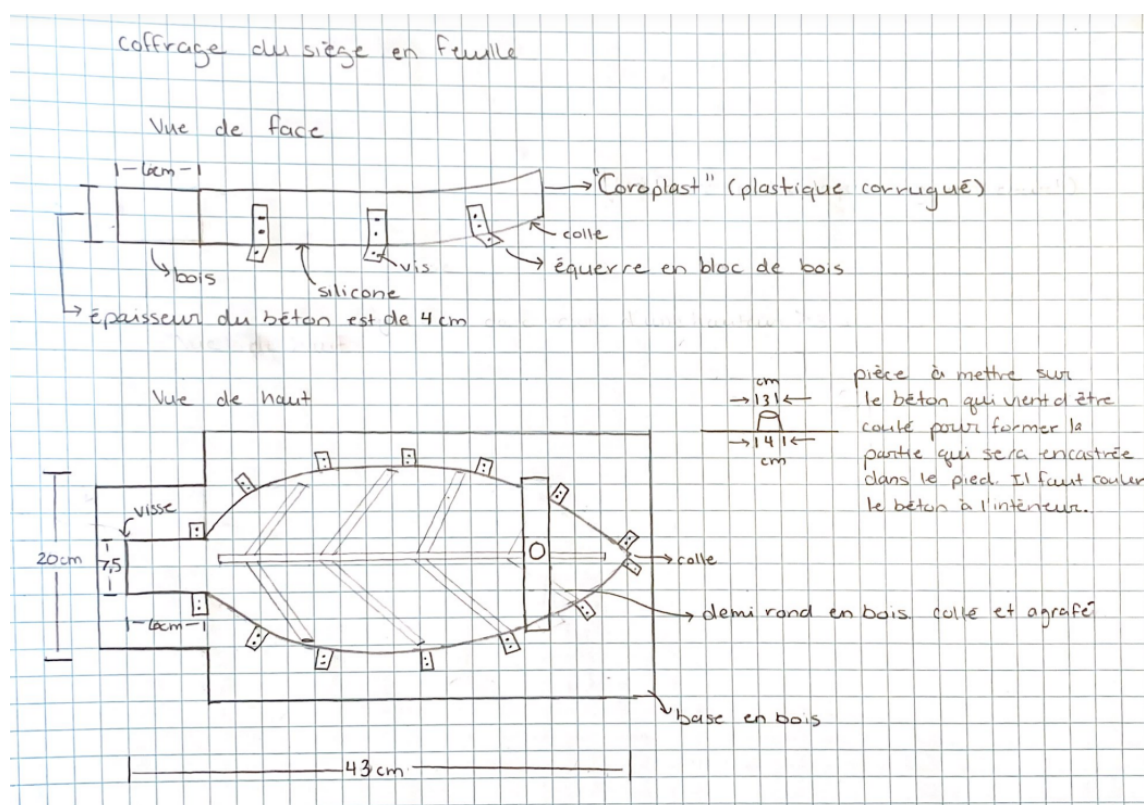 coffrage du siège en feuille
Vue de face
|-6cm-|
"Coroplast" (plastique corrugué)
colle
vis
équerre en bloc de bois
bois
silicone
épaisseur du béton est de 4cm
Vue de haut
cm
→|3|←
→|4|←
cm
pièce à mettre sur
le béton qui vient d'être
coulé pour former la
partie qui sera encastrée
dans le pied. Il faut couler
le béton à l'intérieur.
visse
20cm
7,5
colle
|-6cm-|
demi rond en bois collé et agrafé
base en bois
43cm